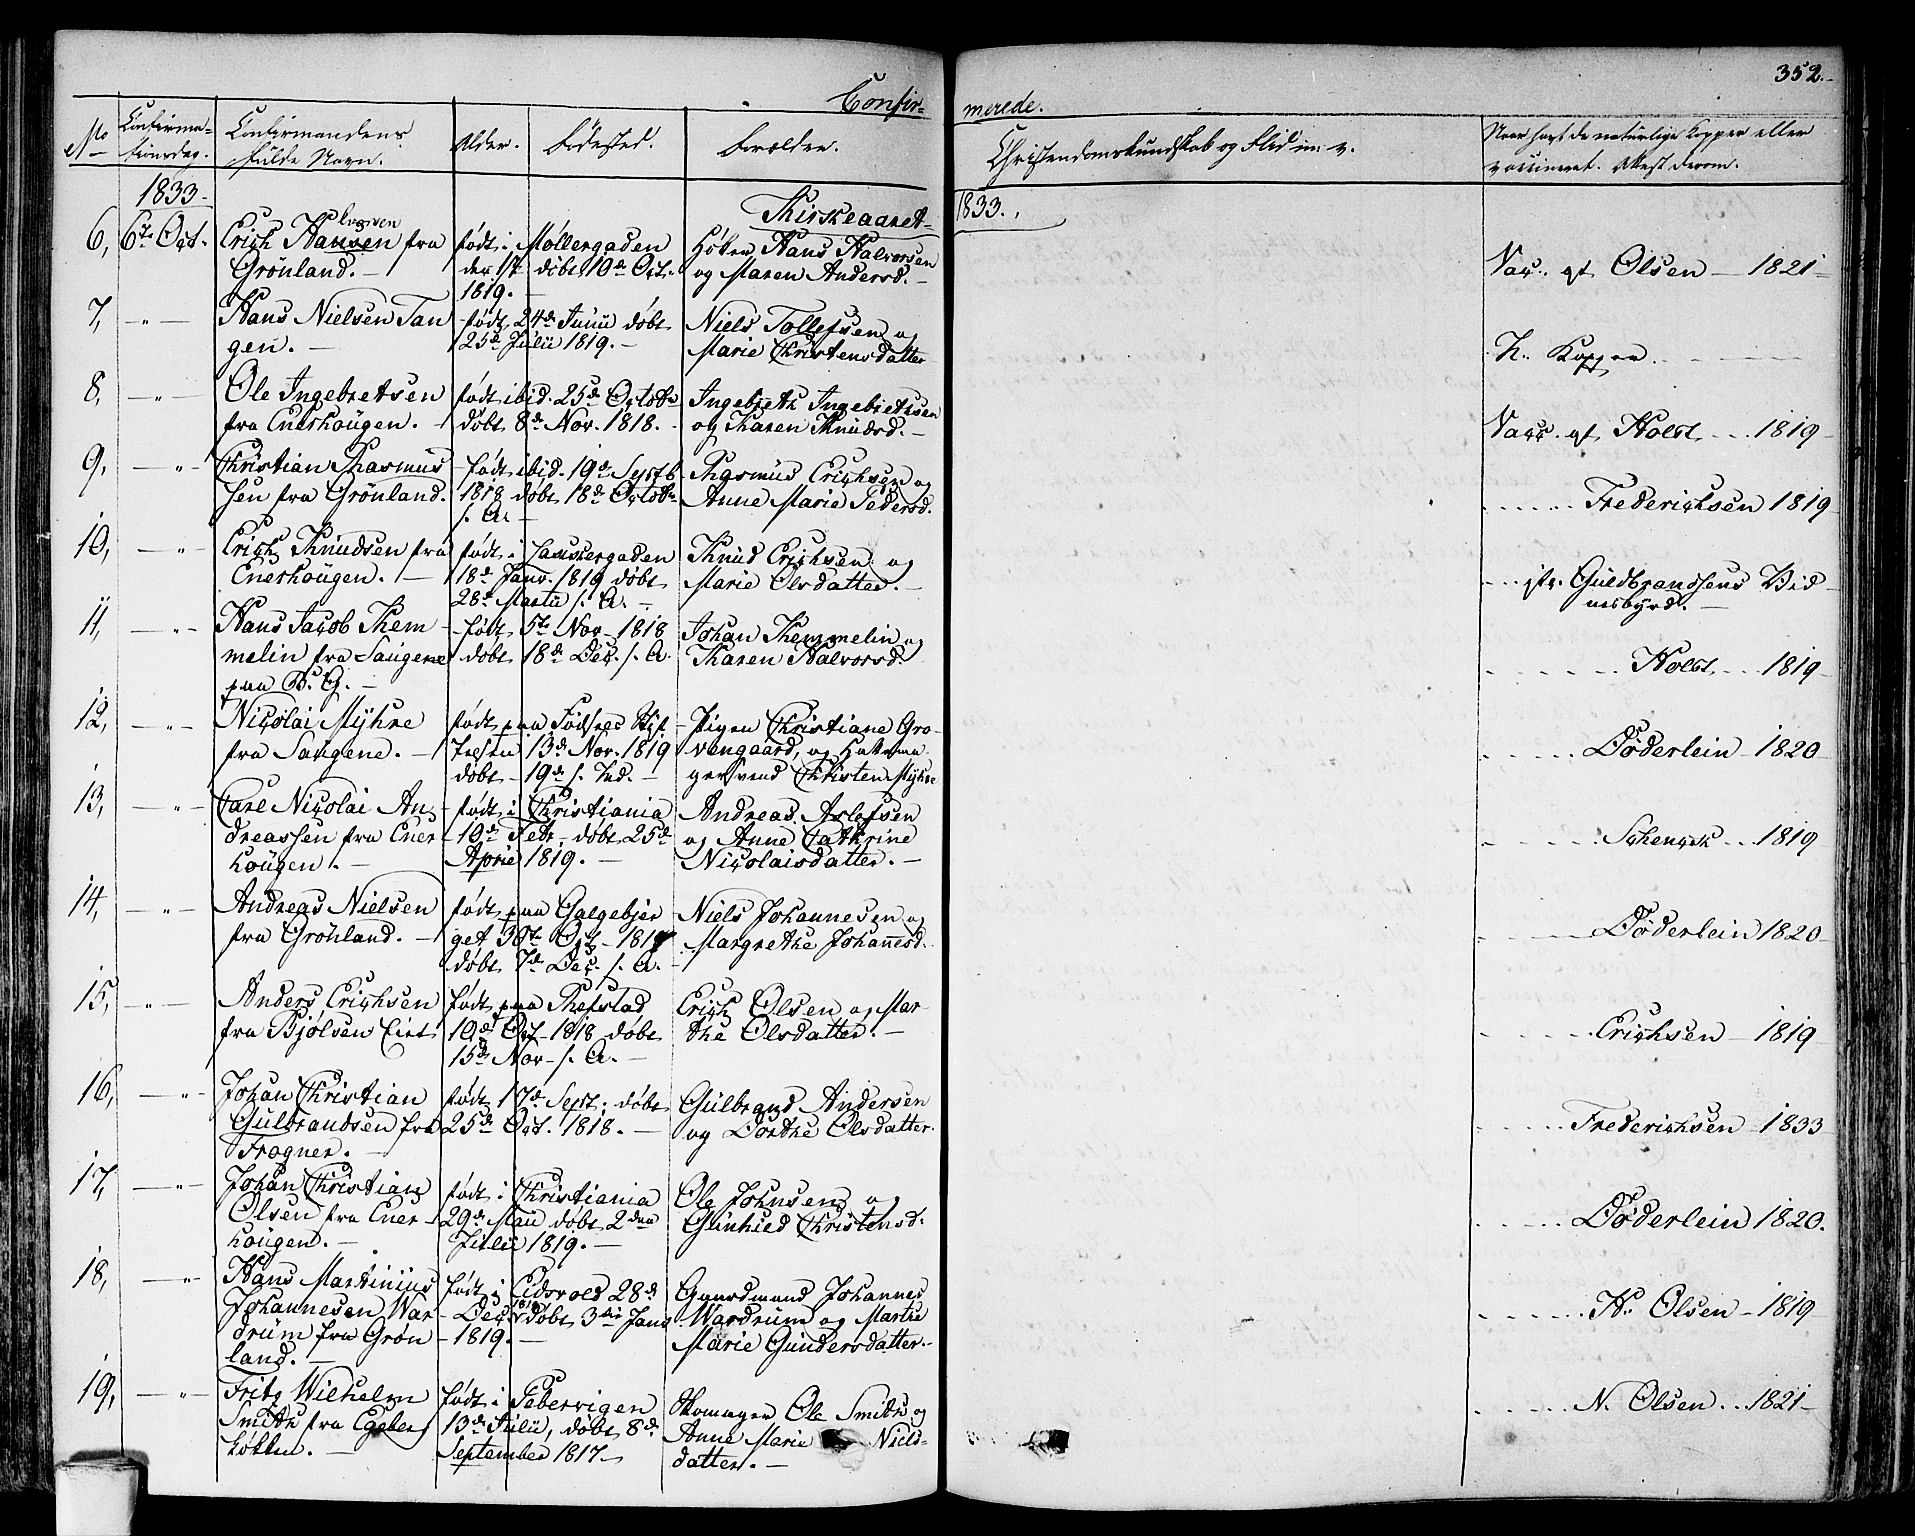 352.
Confir= merede.
No Confirma= Confirmandens Alder. Fødested. Forældre. Christendomskundskab og Flid m: v. Naar havt de naturlige Kopper eller
tionsdag. fulde Navn. vaccineret. Attest derom.
1833. Kirkeaaret 1833.
6, 6te Oct. Erich Hansen fra født i Møllergaden Høker Hans Halvorsen
Grönland. — den døbt 10de Oct. og Maren Andersd. — Vac. af Olsen — 1821
1819. —
7, — " — Hans Nielsen Tan født 24de Junii døbt Niels Tollefsen og
gen. — 25de Julii 1819. — Marie Christensdatter H. Kopper.
8, — " — Ole Ingebretsen født ibid. 25de Octob. Ingebreth Ingebretsen
fra Enerhougen. — døbt 8de Nov. 1818. — og Karen Knudsd. — Vacc. af Holst 1819
9, — " — Christian Rasmus født ibid. 19de Septb Rasmus Erichsen og
sen fra Grönland. 1818 døbt 18de Octob. Anne Marie Pedersd. Frederichsen 1819
s. A. —
10, — " Erich Knudsen fra født i Knud Erichsen og
Enerhougen. — 18de Janv. 1819 døbt Marie Olsdatter. — Guldbrandsens Vid
28de Martii s. A. — nesbyrd. —
11, — " — Hans Jacob Them født 5te Nov 1818 Johan Themmelin og
melin fra Saugene døbt 18de Dec. s. A. Karen Halvorsd. Holst 1819
paa B. G. —
12, — " Nicolai Myhre født paa Fødsels Stif Pigen Christiane Gro
fra Saugene. — telsen 13de Nov. 1819 vengaard, og Hatma
døbt 19de s. Md. — gersvend Christen Myhre Døderlein 1820
13, — " Carl Nicolai An født i Christiania Andreas Aslefsen
dreassen fra Ener 19de Febr. døbt 25de og Anne Cathrine
hougen. — April 1819. — Nicolaisdatter. — Schenck 1819
14, — " — Andreas Nielsen født paa Galgebjer Niels Johannesen og
fra Grönland. — get 30te Oct. 1819 Margrethe Johannesd. Døderlein 1820
døbt 7de Dec. s. A. —
15, " — Anders Erichsen født paa Refstad Erich Olsen og Mar
fra Bjølsen Eiet 10de Oct. 1818 døbt the Olsdatter. — Erichsen — 1819
15de Nov. s. A. —
16, — " — Johan Christian født 17de Sept. døbt Gulbrand Andersen
Gulbrandsen fra 25de Oct. 1818. — og Dorthe Olsdatter. Frederichsen — 1833
Frogner. —
17, — " Johan Christian født i Christiania Ole Johnsen og
Olsen fra Ener 29de Maii døbt 2den Gunhild Christensd. Døderlein 1820.
hougen. — Julii 1819. —
18, — " Hans Martinius født i Eidsvold 28de Gaardmand Johannes
Johannesen War Dec. 1818 døbt 3die Janv Wardrum og Marthe
drum fra Grön 1819. — Marie Gundersdatter. — N. Olsen — 1819
land. —
19, — " Fritz Wilhelm født i Pebervigen Skomager Ole Smith og
Smith fra Egeber 13de Julii, døbt 8de Anne Marie Niels N. Olsen 1821
løkken. — September 1817 — datter. —